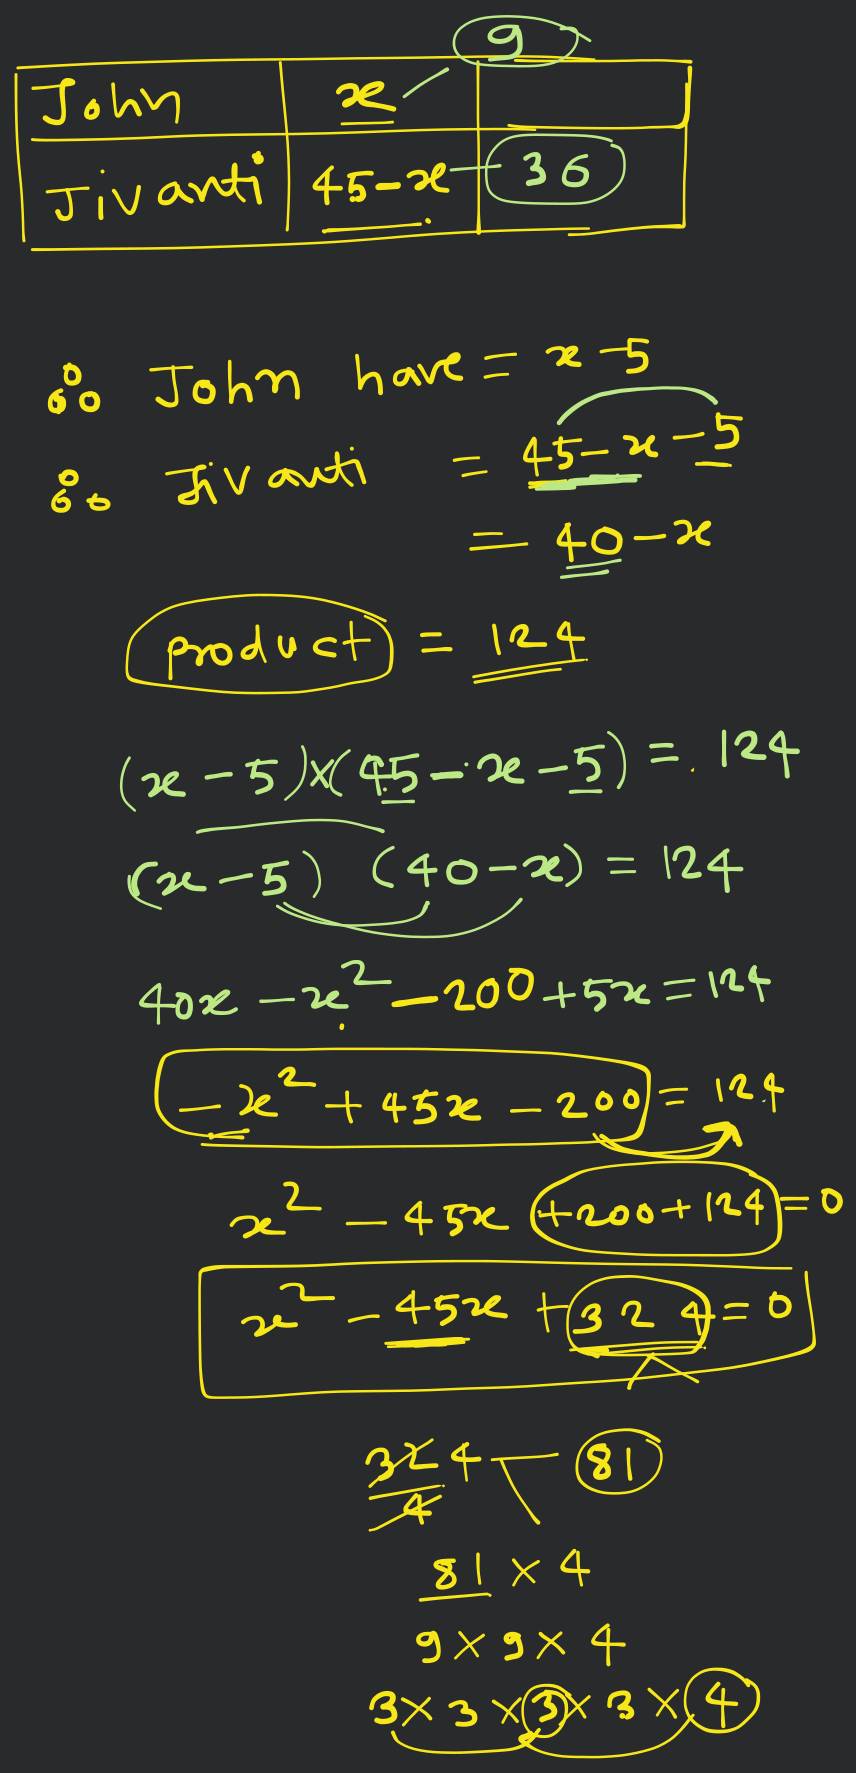 9
John x
Jivanti 45-x 36
∴ John have = x-5
∴ Jivanti = 45-x-5
= 40-x
product = 124
(x-5)×(45-x-5) = 124
(x-5) (40-x) = 124
40x - x² - 200 + 5x = 124
-x² + 45x - 200 = 124
x² - 45x + 200 + 124 = 0
x² - 45x + 324 = 0
324/4 81
81 × 4
9 × 9 × 4
3 × 3 × 3 × 3 × 4